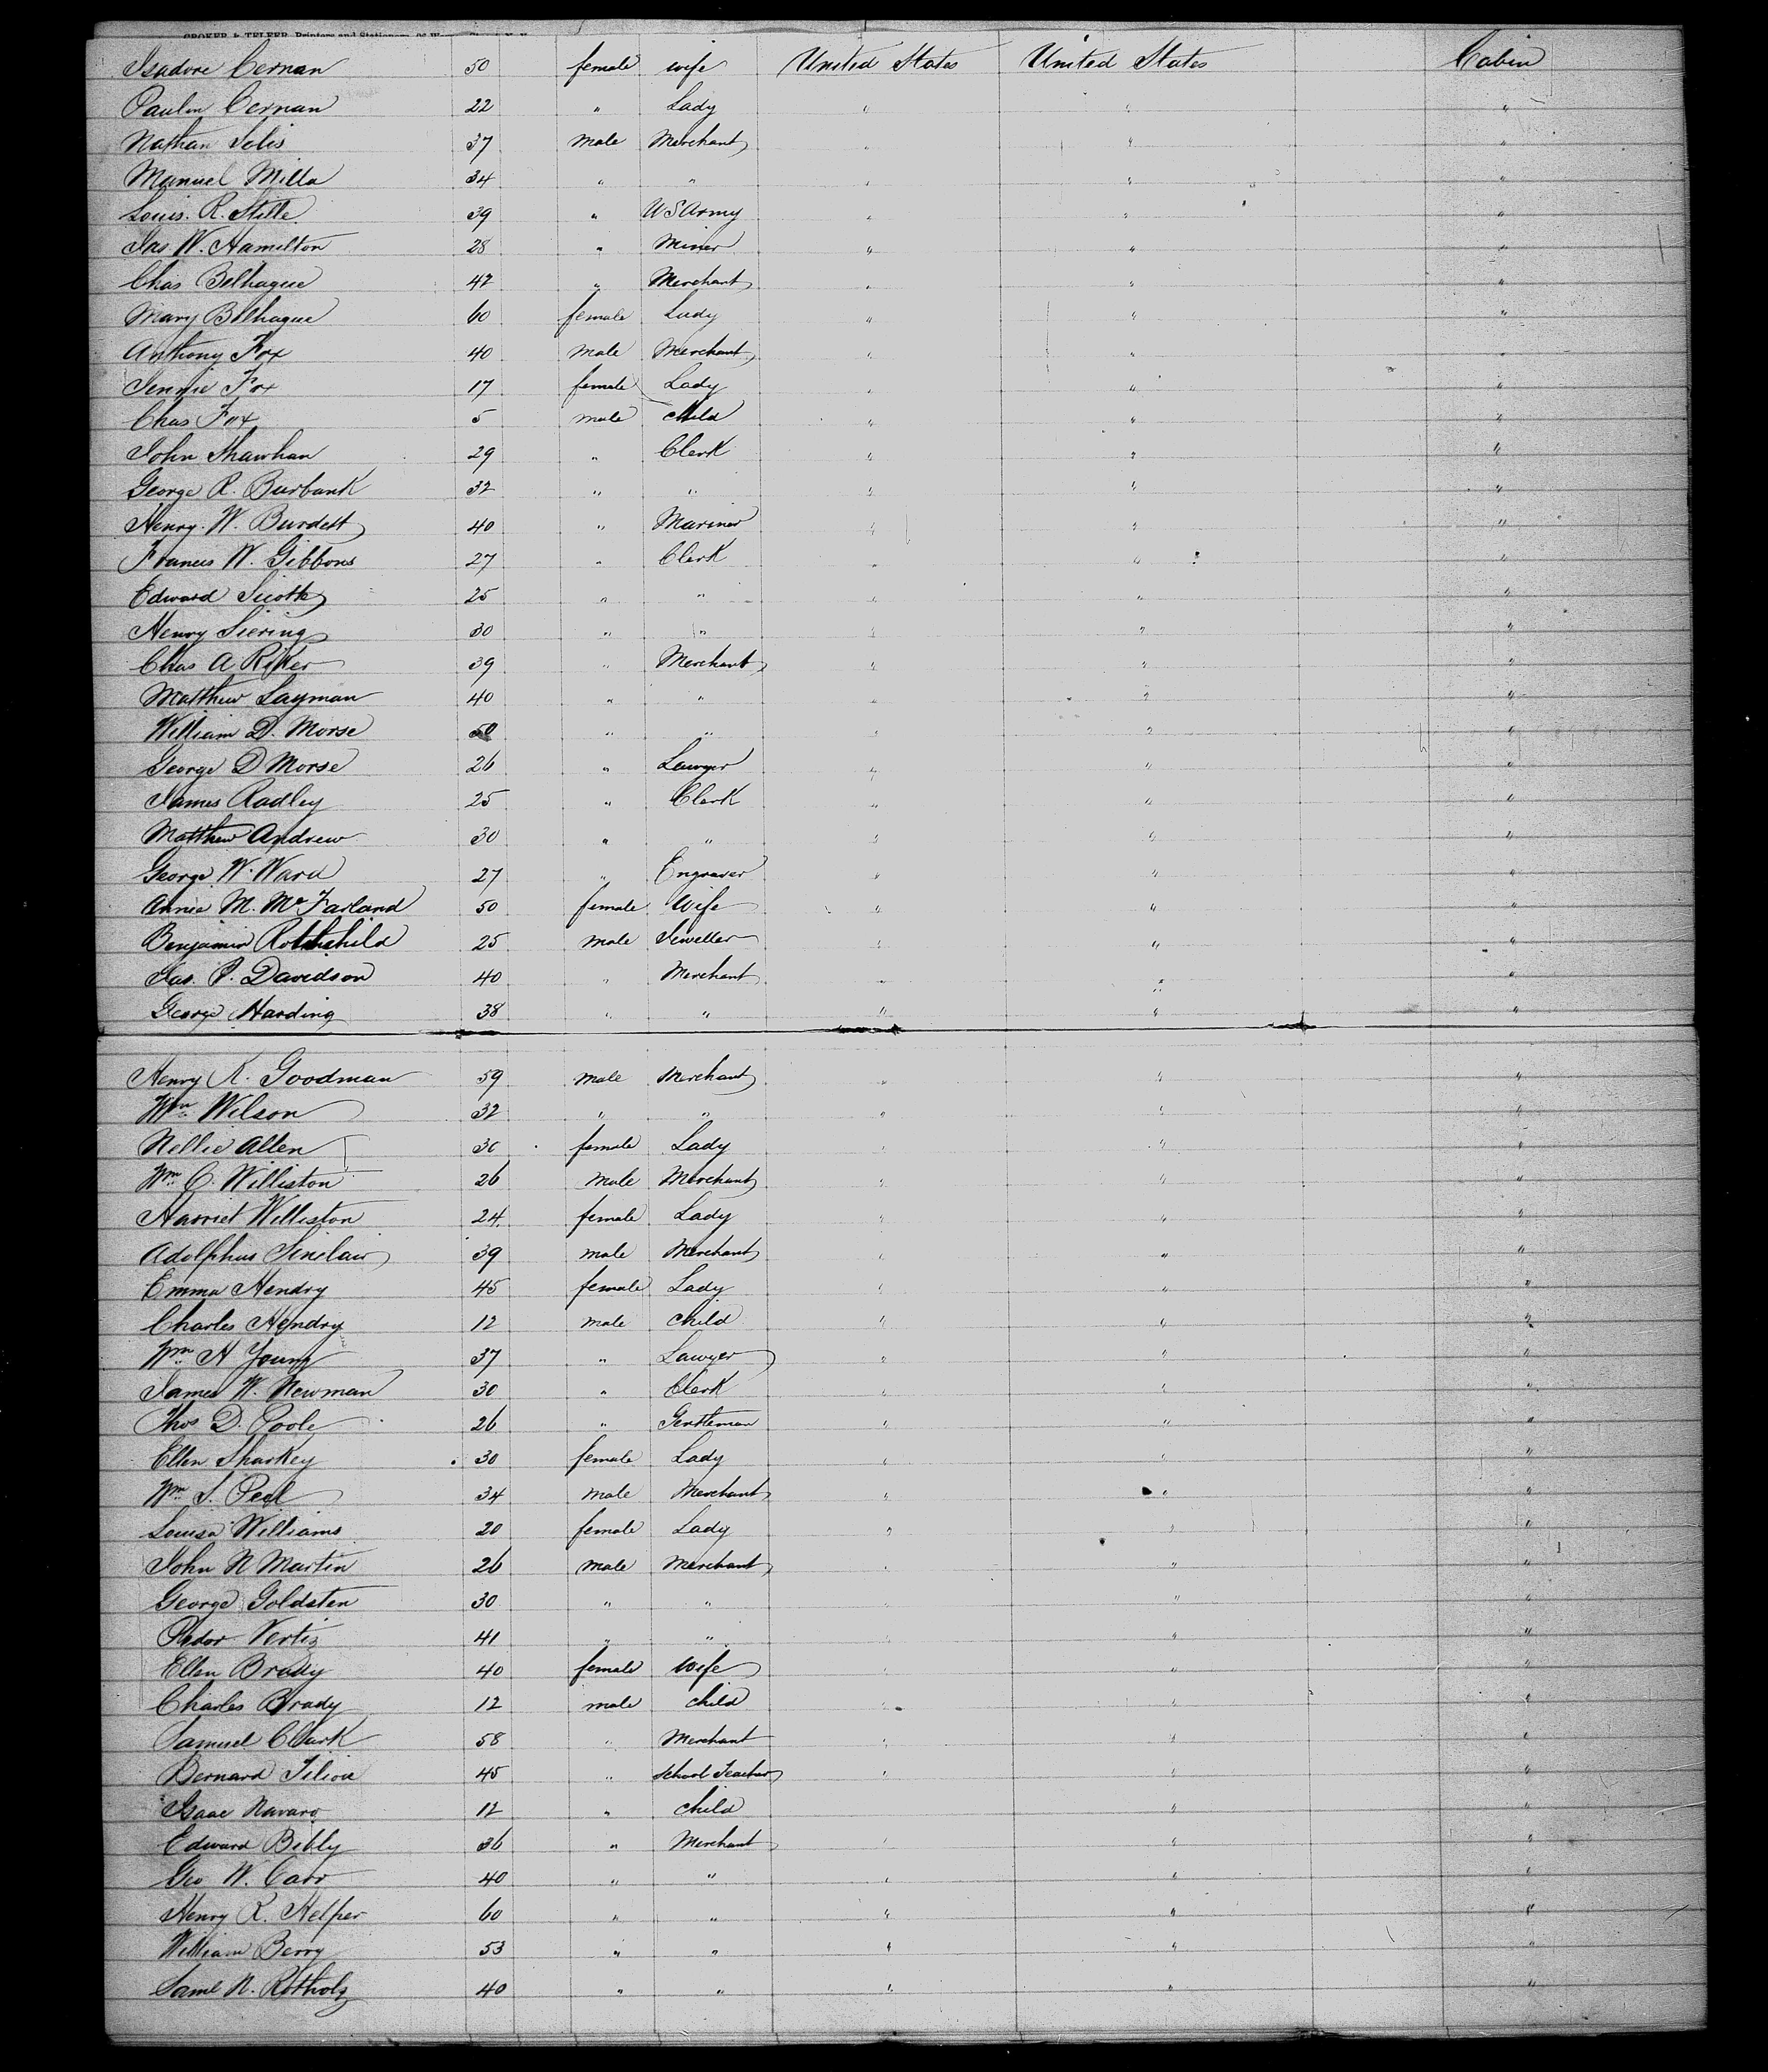 CROKER & TELFER, Printers and Stationers
Isadore Cernan 50 female wife United States United States Cabin
Paulin Cernan 22 " Lady " " "
Nathan Solis 37 male Merchant " " "
Manuel Milla 34 " " " " "
Louis. R. Stille 39 " US Army " " "
Jas. W. Hamilton 28 " Miner " " "
Chas Belhague 42 " Merchant " " "
Mary Belhague 60 female Lady " " "
Anthony Fox 40 male Merchant " " "
Jennie Fox 17 female Lady " " "
Chas Fox 5 male child " " "
John Shawhan 29 " Clerk " " "
George R. Burbank 32 " " " " "
Henry. W. Burdett 40 " Mariner " " "
Francis W. Gibbons 27 " Clerk " " "
Edward 25 " " " " "
Henry Siering 30 " " " " "
Chas A Riker 39 " Merchant " " "
Matthew Layman 40 " " " " "
William D. Morse 50 " " " " "
George D Morse 26 " Lawyer " " "
James Radley 25 " Clerk " " "
Matthew Andrew 30 " " " " "
George W. Ward 27 " Engraver " " "
Annie M. McFarland 50 female Wife " " "
Benjamin Rothschild 25 male Jeweller " " "
Jas. P. Davidson 40 " Merchant " " "
George Harding 38 " " " " "
Henry K. Goodman 59 male Merchant " " "
Wm Wilson 32 " " " " "
Nellie Allen 30 female Lady " " "
Wm C. Williston 26 male Merchant " " "
Harriet Williston 24 female Lady " " "
Adolphus Sinclair 39 male Merchant " " "
Emma Hendry 45 female Lady " " "
Charles Hendry 12 male child " " "
Wm H Young 37 " Lawyer " " "
James W. Newman 30 " Clerk " " "
Thos D. Poole 26 " Gentleman " " "
Ellen Sharkey 30 female Lady " " "
Wm S. Peel 34 male Merchant " " "
Louisa Williams 20 female Lady " " "
John N Martin 26 male Merchant " " "
George Goldsten 30 " " " " "
Pedor Vertiz 41 " " " " "
Ellen Brady 40 female Wife " " "
Charles Brady 12 male child " " "
Samuel Clark 58 " Merchant " " "
Bernard 45 " School Teacher " " "
Isaac Navaro 12 " child " " "
Edward Bibly 36 " Merchant " " "
Geo W. Carr 40 " " " " "
Henry R. Helper 60 " " " " "
William Berry 53 " " " " "
Saml N. Rotholz 40 " " " " "